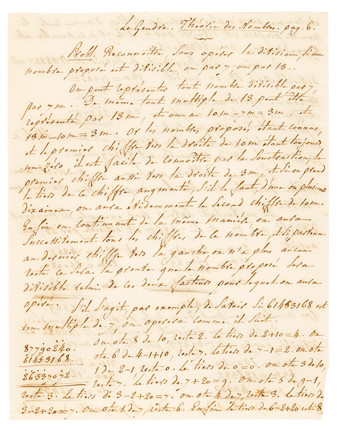 Le Gendre. Théorie des Nombres. pag. 6.
Probl. Reconnoître sans opérer la division, si un
nombre proposé est divisible, ou par 7, ou par 13.
On peut représenter tout nombre divisible par 7,
par 7m. De même tout multiple de 13 peut être
représenté par 13m, et on a 10m - 7m = 3m, et
13m - 10m = 3m. Or les nombres proposés étant connus,
et le premier chiffre vers la droite de 10m étant toujours
un zéro, il est facile de connoître par la soustraction, le
premier chiffre aussi vers la droite de 3m, et si on prend
le tiers de ce chiffre augmenté, s'il le faut d'une ou plusieurs
dixaines, on aura évidemment le second chiffre de 10m.
Enfin en continuant de la même manière on aura
successivement tous les chiffres de ce nombre, et si parvenu
au dernier chiffre vers la gauche, on n'a plus aucun
reste, ce sera la preuve que le nombre proposé sera
divisible celui de ces deux facteurs pour lequel on aura
opéré.
S'il s'agit, par exemple, de savoir si 61453168 est
un multiple de 7, on opérera comme il suit
on ôte 8 de 10, reste 2. le tiers de 2+10=4. on
87790240.
61453168.
26337072
ôte 6 de 4-1+10, reste 7. le tiers de 7-1=2. on ôte
1 de 2-1, reste 0. le tiers de 0=0. on ôte 3 de 10,
reste 7. le tiers de 7+20=9. on ôte 5 de 9-1,
reste 3. le tiers de 3-2+20=7. on ôte 4 de 7 reste 3. le tiers de
3-2+20=7. on ôte 1 de 7, reste 6. Enfin le tiers de 6-2+20 est 8